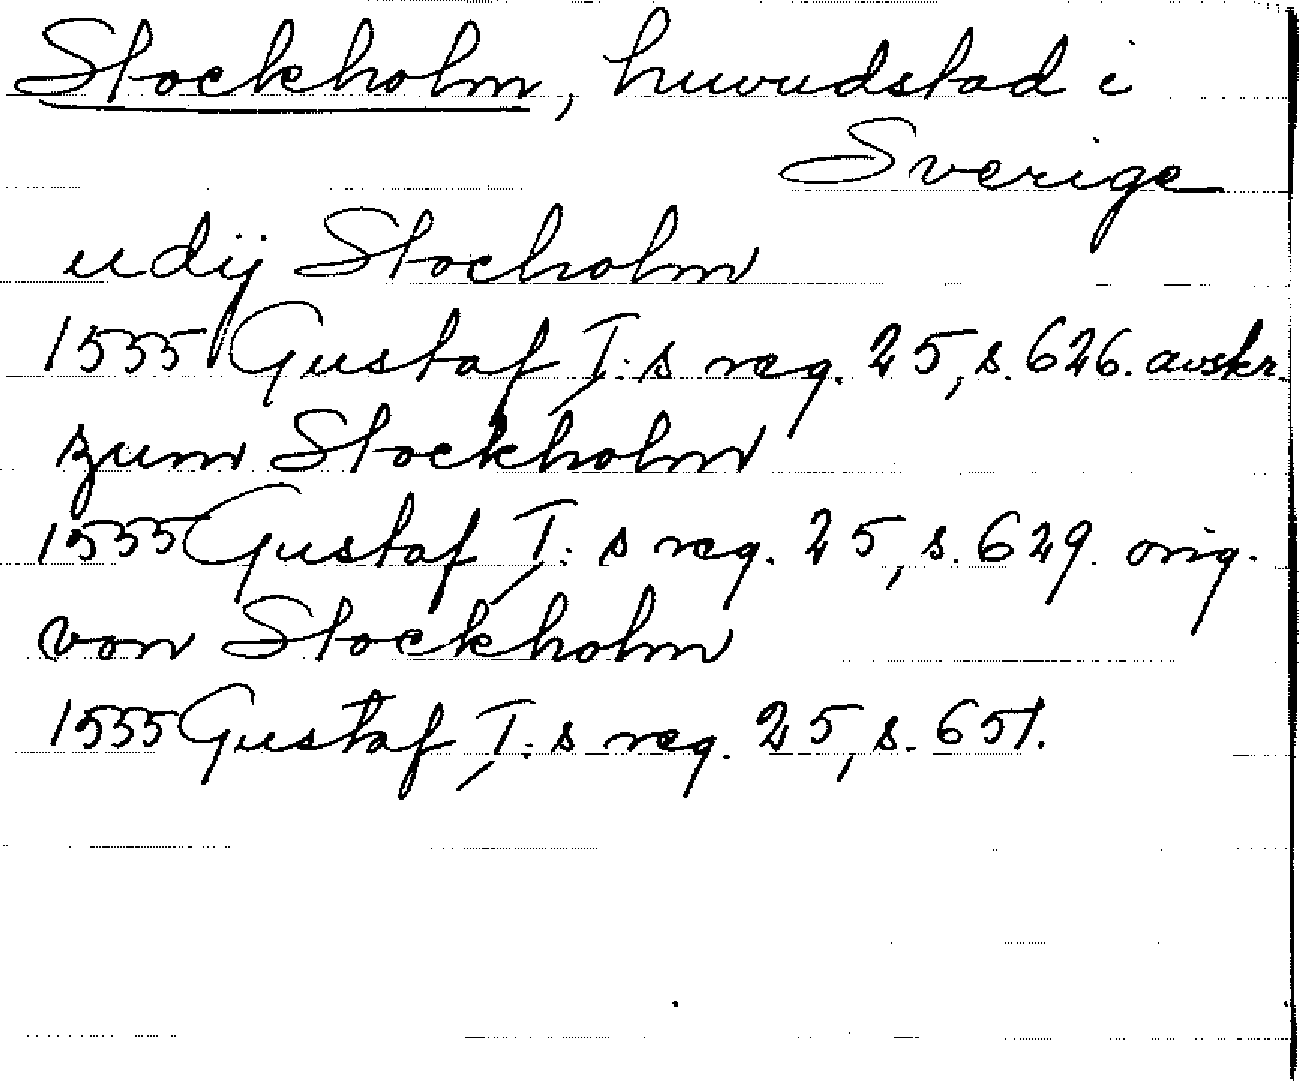 Stockholm, huvudstad i
Sverige
udij Stocholm
1555 Gustaf I:s reg. 25, s. 626. avskr.
zum Stockholm
1555 Gustaf I:s reg. 25, s. 629. orig.
von Stockholm
1555 Gustaf I:s reg. 25, s. 651.